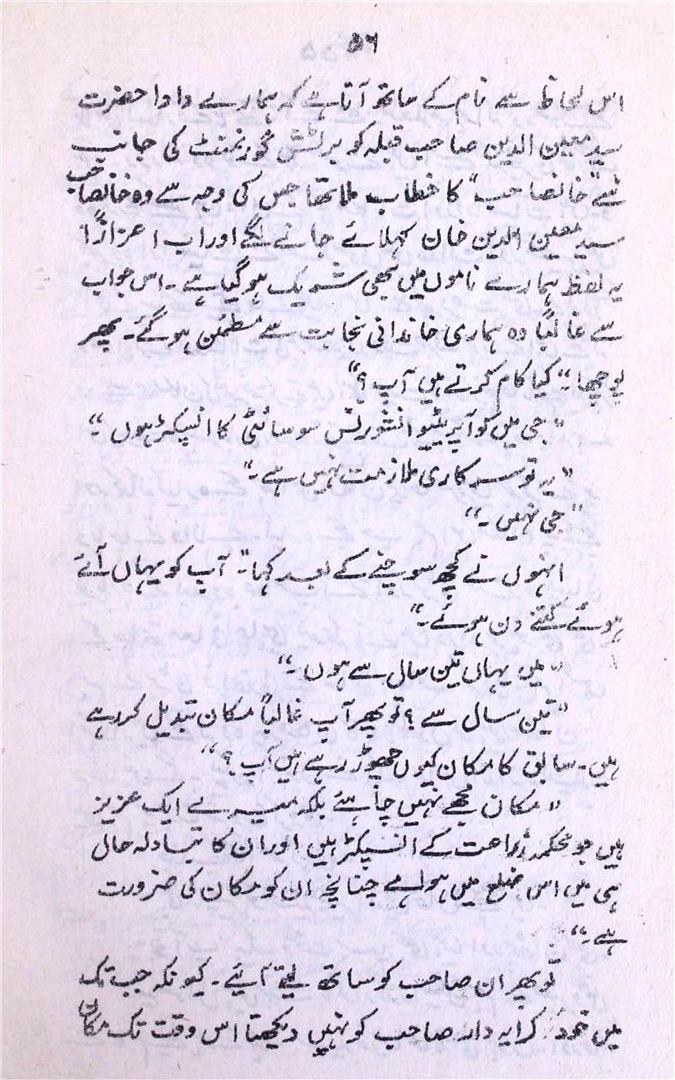 ۵۶
اس لحاظ سے نام کے ساتھ آتا ہے کہ ہمارے دادا حضرت
سید معین الدین صاحب قبلہ کو برٹش گورنمنٹ کی جانب
سے "خانصاحب" کا خطاب ملا تھا جس کی وجہ سے وہ خانصاحب
سید معین الدین خان کہلائے جانے لگے اور اب اعزازاً
یہ لفظ ہمارے ناموں میں بھی شریک ہو گیا ہے۔ اس جواب
سے غالباً وہ ہماری خاندانی نجابت سے مطمئن ہو گئے۔ پھر
پوچھا۔ "کیا کام کرتے ہیں آپ؟"
"جی میں کوآپریٹیو انشورنس سوسائٹی کا انسپکٹر ہوں"۔
"یہ تو سرکاری ملازمت نہیں ہے۔"
"جی نہیں۔"
انہوں نے کچھ سوچنے کے بعد کہا۔ "آپ کو یہاں آئے
ہوئے کتنے دن ہوئے۔"
"میں یہاں تین سال سے ہوں۔"
"تین سال سے؟ تو پھر آپ غالباً مکان تبدیل کر رہے
ہیں۔ سابق کا مکان کیوں چھوڑ رہے ہیں آپ؟"
"مکان مجھے نہیں چاہئے بلکہ میرے ایک عزیز
ہیں جو محکمہ زراعت کے انسپکٹر ہیں اور ان کا تبادلہ حال
ہی میں اس ضلع میں ہوا ہے چنانچہ ان کو مکان کی ضرورت
ہے۔"
تو پھر ان صاحب کو ساتھ لیتے آیئے۔ کیونکہ جب تک
میں خود کرایہ دار صاحب کو نہیں دیکھتا اس وقت تک مکان